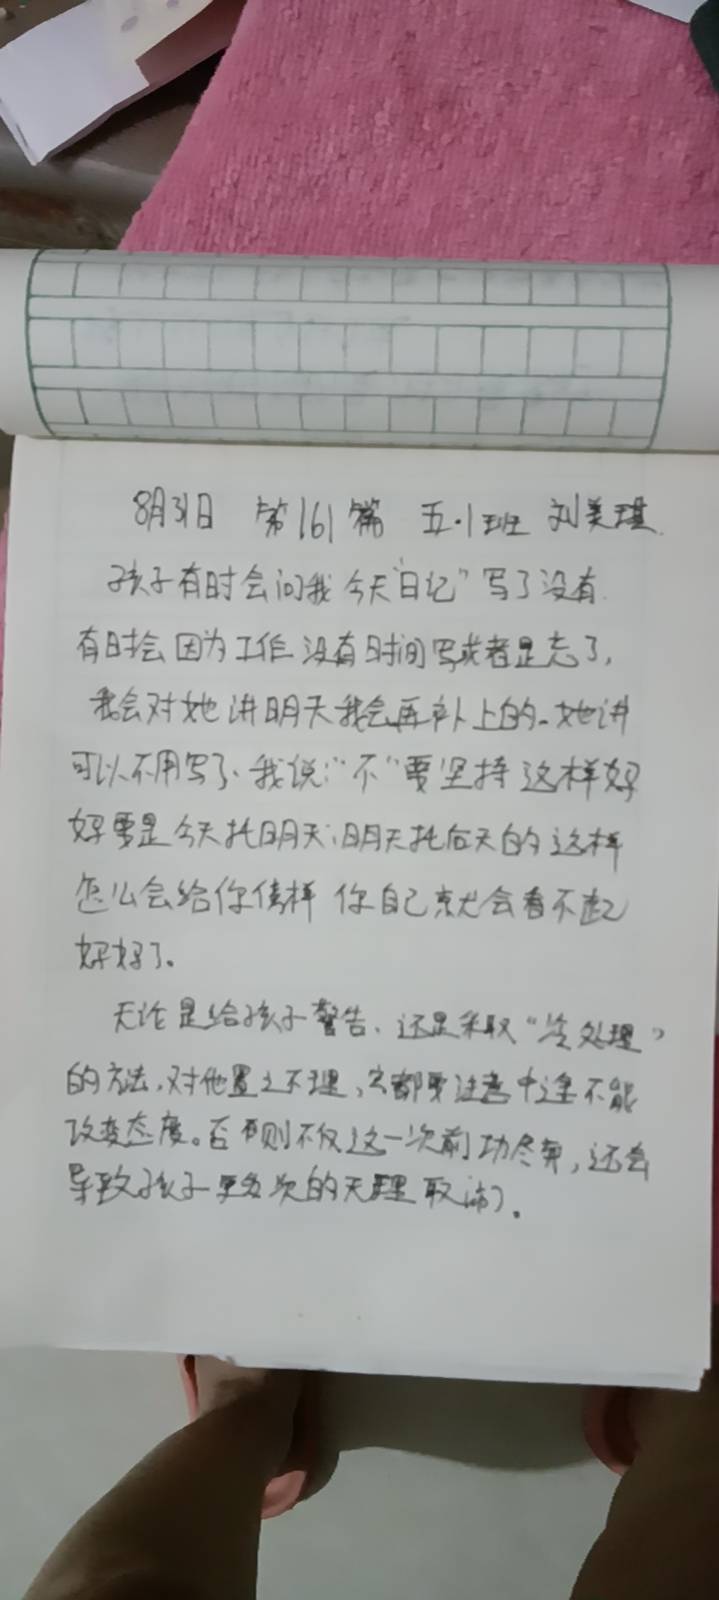 8月31日 第161篇 五.1班 刘美琪
孩子有时会问我今天"日记"写了没有.
有时会因为工作没有时间写或者是忘了,
我会对她讲明天我会再补上的.她讲
可以不用写了.我说:"不"要坚持这样好
好要是今天托明天;明天托后天的这样
怎么会给你榜样你自己就会看不起
好好了。
无论是给孩子警告、还是采取"冷处理"
的方法,对他置之不理,都要注意中途不能
改变态度。否则不仅这一次前功尽弃,还会
导致孩子更多次的无理取闹。